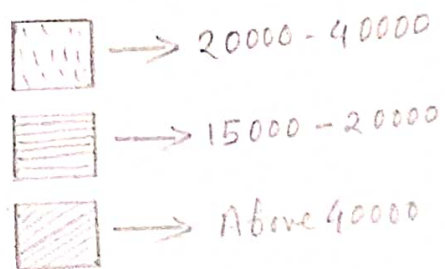 20000 - 40000
15000 - 20000
Above 40000